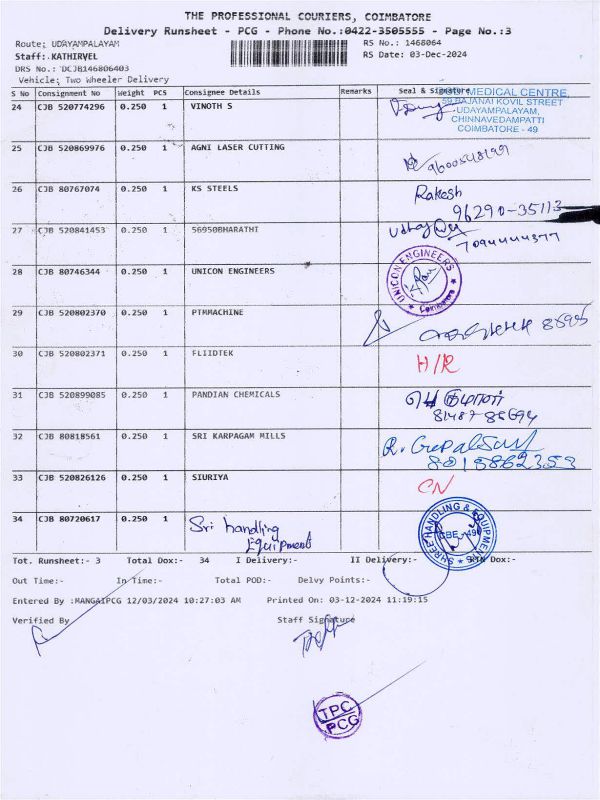 THE PROFESSIONAL COURIERS, COIMBATORE
Delivery Runsheet - PCG - Phone No.:0422-3505555 - Page No.:3
Route; UDAYAMPALAYAM RS No.: 1468064
Staff: KATHIRVEL RS Date: 03-Dec-2024
DRS No.: DCJB146806403
Vehicle; Two Wheeler Delivery
S No Consignment No Weight PCS Consignee Details Remarks Seal & Signature
24 CJB 520774296 0.250 1 VINOTH S
MEDICAL CENTRE,
59, BAJANAI KOVIL STREET
UDAYAMPALAYAM,
CHINNAVEDAMPATTI
COIMBATORE - 49
25 CJB 520869976 0.250 1 AGNI LASER CUTTING
26 CJB 80767074 0.250 1 KS STEELS Rakesh
96290-35113
27 CJB 520841453 0.250 1 56950BHARATHI
7094444377
28 CJB 80746344 0.250 1 UNICON ENGINEERS UNICON ENGINEERS Coimbatore
29 CJB 520802370 0.250 1 PTMMACHINE
30 CJB 520802371 0.250 1 FLIIDTEK H/R
31 CJB 520899085 0.250 1 PANDIAN CHEMICALS
32 CJB 80818561 0.250 1 SRI KARPAGAM MILLS
33 CJB 520826126 0.250 1 SIURIYA CN
34 CJB 80720617 0.250 1 Sri handling
Equipments
SHREE HANDLING & EQUIPMENTS
CBE - 49
Tot. Runsheet:- 3 Total Dox:- 34 I Delivery:- II Delivery:- RTN Dox:-
Out Time:- In Time:- Total POD:- Delvy Points:-
Entered By :MANGAIPCG 12/03/2024 10:27:03 AM Printed On: 03-12-2024 11:19:15
Verified By Staff Signature
TPC
PCG